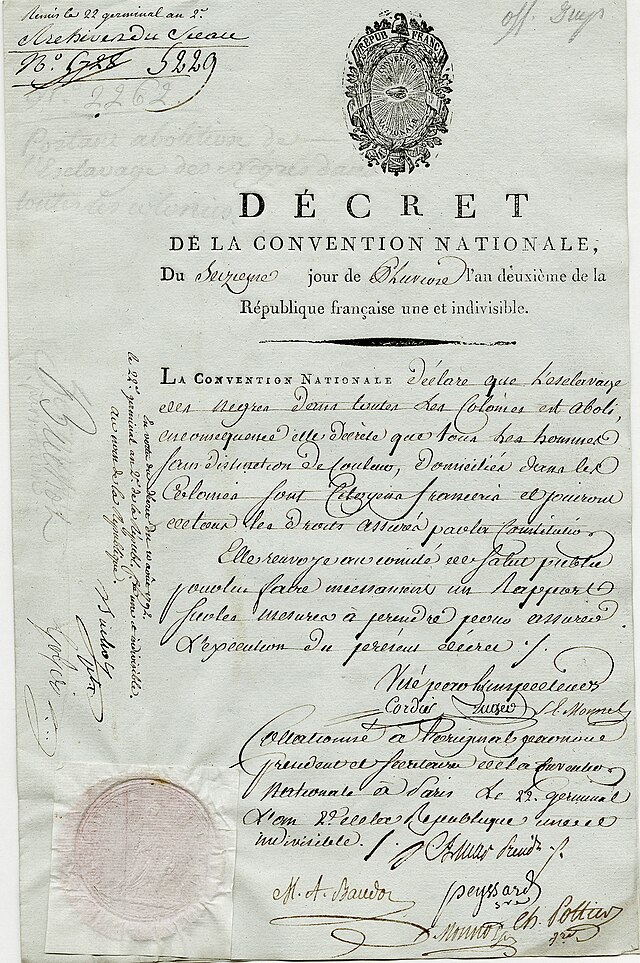 Remis le 22 germinal an 2e.
Archives du Sceau
No. 5229
off. Dup
No. 2262
Portant abolition de
l'Esclavage des Negres dans
toutes les colonies
RÉPUB. FRANÇ.
CONVENTION
DÉCRET
DE LA CONVENTION NATIONALE,
Du Seizieme jour de Pluviose l'an deuxième de la
République française une et indivisible.
LA CONVENTION NATIONALE déclare que l'esclavage
des Negres dans toutes les Colonies est aboli,
en consequence elle décrète que tous les hommes
sans distinction de couleur, domiciliés dans les
Colonies sont Citoyens français et jouiront
de tous les droits assurés par la Constitution
Elle renvoye au comité de Salut public
pour lui faire incessament un Rapport
sur les mesures à prendre pour assurer
L'execution du présent décret ./.
Visé par les inspecteurs
Cordier Duser S. E. Monnel
Collationné à l'original par nous
president et Secretaire de la Convention
Nationale à Paris Le 22. germinal
L'an 2e. de la Republique une et
indivisible. /.
Amar Presid.
M. A. Baudot
peyssard
sre
Monnot
Ch. Pottier
sre
En vertu du décret du 10 août 1792.
le 22e. germinal an 2e. de la Républ. f.se une et indivisible
au nom de la République.
Buchot